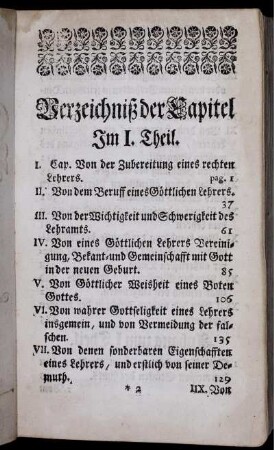 Verzeichniß der Capitel
Im I. Theil.
I. Cap. Von der Zubereitung eines rechten
Lehrers. pag. 1
II. Von dem Beruff eines Göttlichen Lehrers.
37
III. Von der Wichtigkeit und Schwerigkeit des
Lehramts. 61
IV. Von eines Göttlichen Lehrers Vereini-
gung, Bekant- und Gemeinschafft mit Gott
in der neuen Geburt. 85
V. Von Göttlicher Weisheit eines Boten
Gottes. 106
VI. Von wahrer Gottseligkeit eines Lehrers
insgemein, und von Vermeidung der fal-
schen. 135
VII. Von denen sonderbaren Eigenschafften
eines Lehrers, und erstlich von seiner De-
muth. 129
* 2 IIX. Von